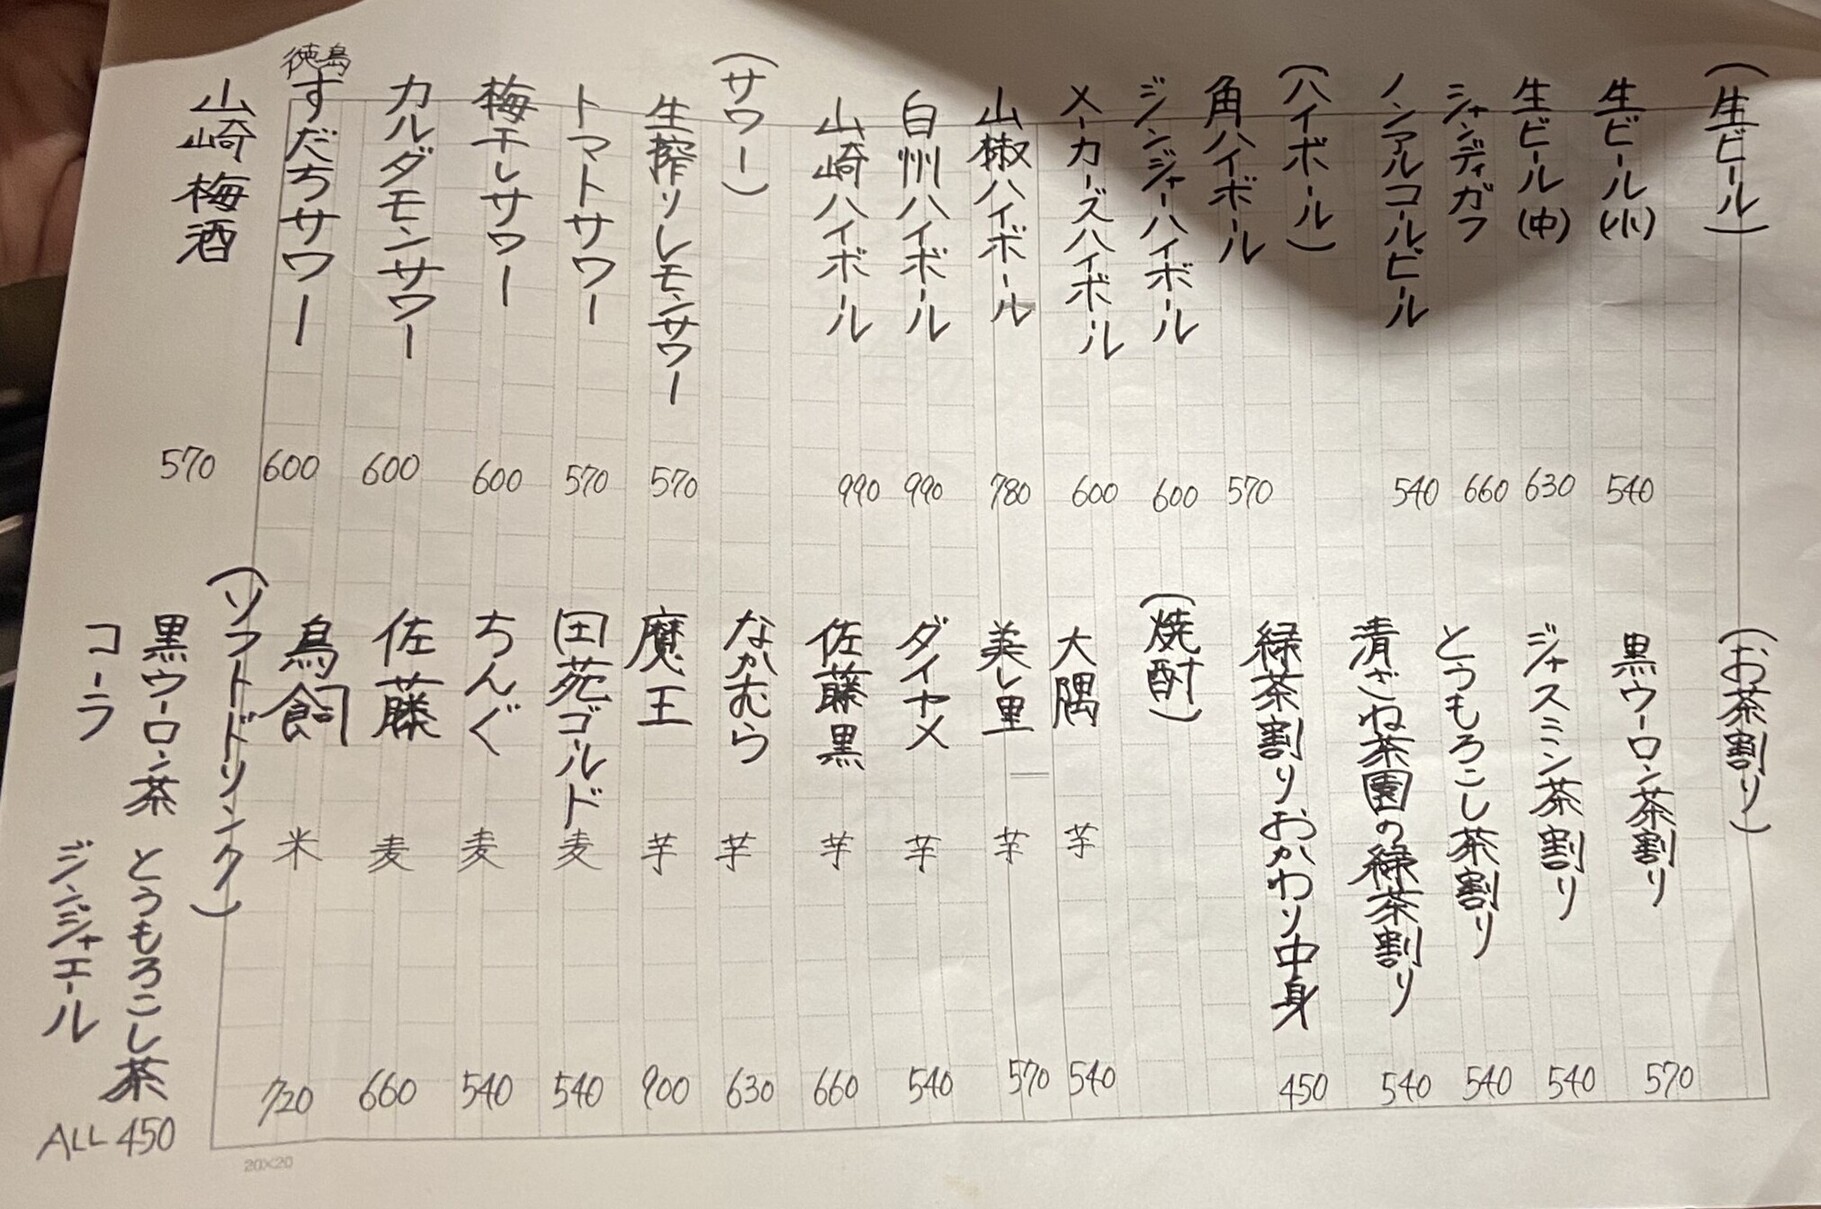 (生ビール)
生ビール(小) 540
生ビール(中) 630
シャンディガフ 660
ノンアルコールビール 540
(ハイボール)
角ハイボール 570
ジンジャーハイボール 600
メーカーズハイボール 600
山椒ハイボール 780
白州ハイボール 990
山崎ハイボール 990
(サワー)
生搾りレモンサワー 570
トマトサワー 570
梅干しサワー 600
カルダモンサワー 600
徳島
すだちサワー 600
山崎梅酒 570
(お茶割り)
黒ウーロン茶割り 570
ジャスミン茶割り 540
とうもろこし茶割り 540
清ざね茶園の緑茶割り 540
緑茶割りおかわり中身 450
(焼酎)
大隅 芋 540
美し里 芋 570
ダイヤメ 芋 540
佐藤黒 芋 660
なかむら 芋 630
魔王 芋 900
田苑ゴールド 麦 540
ちんぐ 麦 540
佐藤 麦 660
鳥飼 米 720
(ソフトドリンク)
黒ウーロン茶 とうもろこし茶
コーラ ジンジャエール
ALL 450
20×20